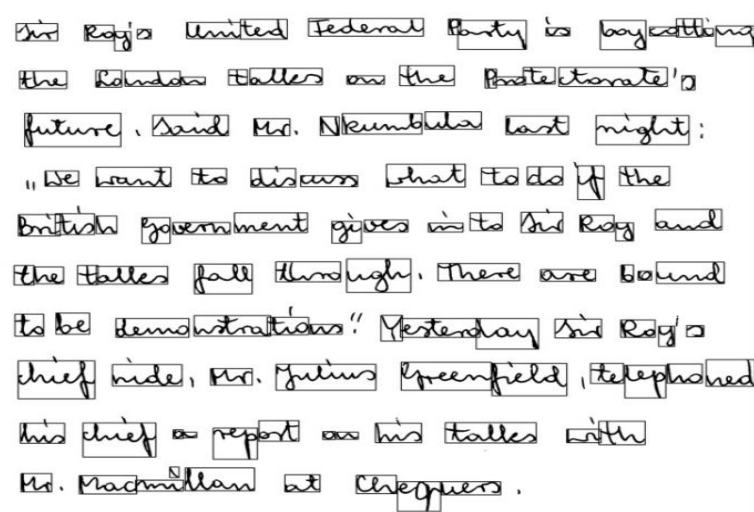 Sir Roy's United Federal Party is boycotting
the London talks on the Protectorate's
future. Said Mr. Nkumbula last night:
"We want to discuss what to do if the
British Government gives in to Sir Roy and
the talks fall through. There are bound
to be demonstrations." Yesterday Sir Roy's
chief aide, Mr. Julius Greenfield, telephoned
his chief a report on his talks with
Mr. Macmillan at Chequers.